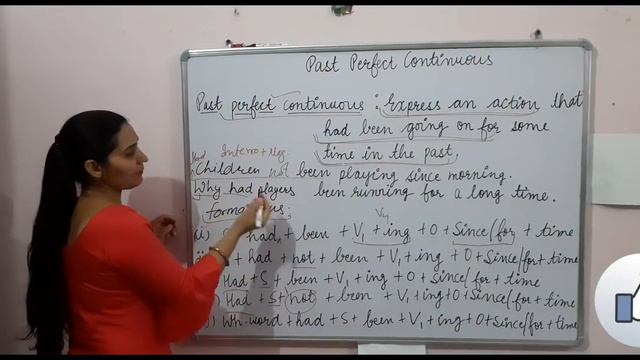 Past Perfect Continuous
Past perfect continuous : Express an action that
had been going on for some
time in the past.
Had Interro + Neg.
Children not been playing since morning.
Why had players been running for a long time.
V4
(i) had + been + V1 + ing + O + Since/for + time
had + not + been + V1 + ing + O + Since/for + time
Had + S + been + V1 + ing + O + Since/for + time
Had + S + not + been + V1 + ing + O + Since/for + time
Wh-word + had + S + been + V1 + ing + O + Since/for + time